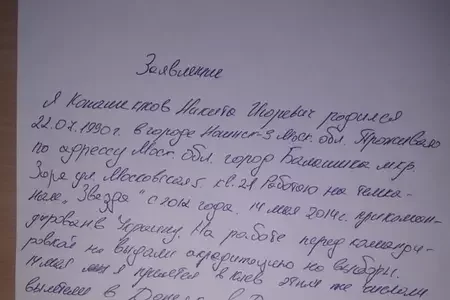 Заявление
Я Конашенков Никита Игоревич родился
22.07.1990г. в городе Ногинск-9 Моск. обл. Проживаю
по адрессу Моск. обл. город Балашиха мкр.
Заря ул. Московская 5. кв. 21 Работаю на телека-
нале "Звезда" с 2012 года. 14 мая 2014г. прикоман-
дирован в Украину. На работе перед командировкой
не выдали акредитацию на выборы.
14 мая я прилетел в Киев этим же числом
вылетели в